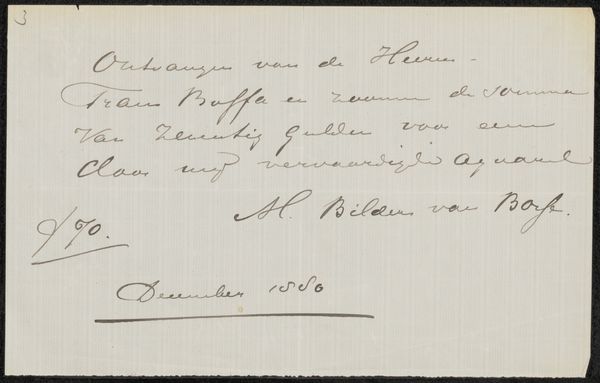 3
Ontvangen van de Heeren
Frans Buffa en zoonen de somma
Van Zeventig Gulden voor een
door mij vervaardigde aquarel
M. Bilders van Bosse.
f 70.
December 1880